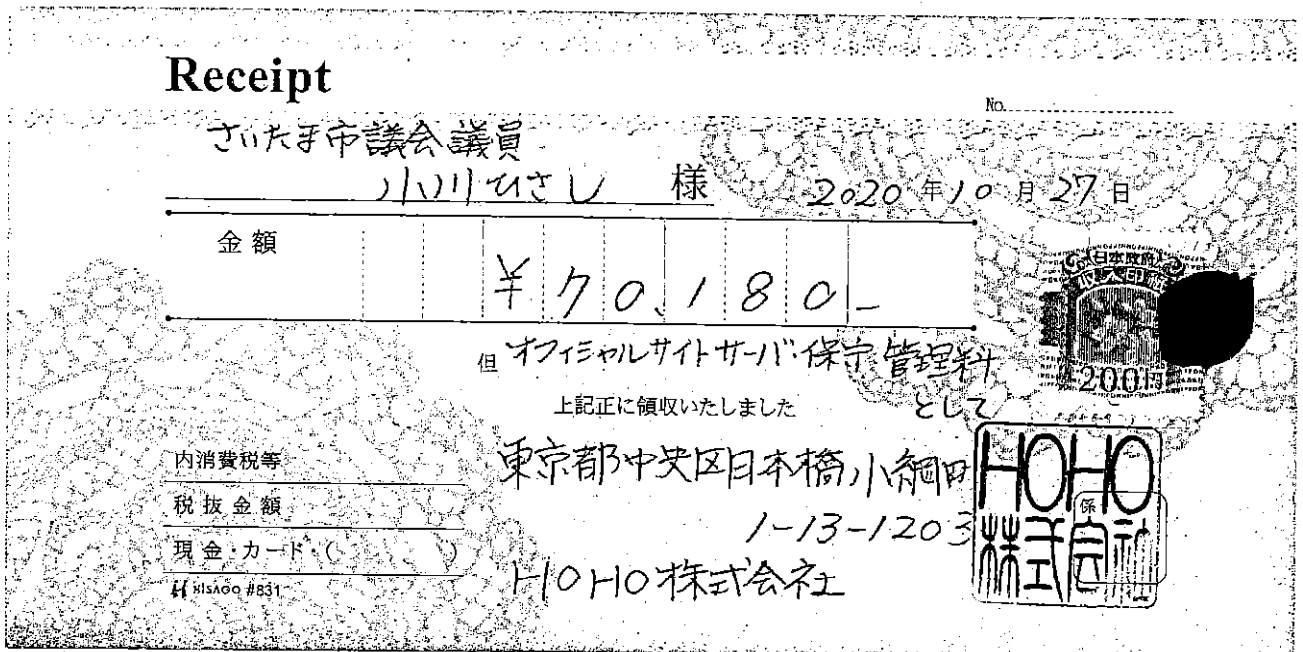 Receipt
No.
さいたま市議会議員
小川ひさし 様
2020 年 10 月 27 日
金額
¥70,180-
但 オフィシャルサイトサーバ保守管理料
として
上記正に領収いたしました
日本政府
200円
内消費税等
税抜金額
現金・カード・( )
HISAGO #831
東京都中央区日本橋小網町
1-13-1203
HOHO株式会社
HOHO
株式会社
係